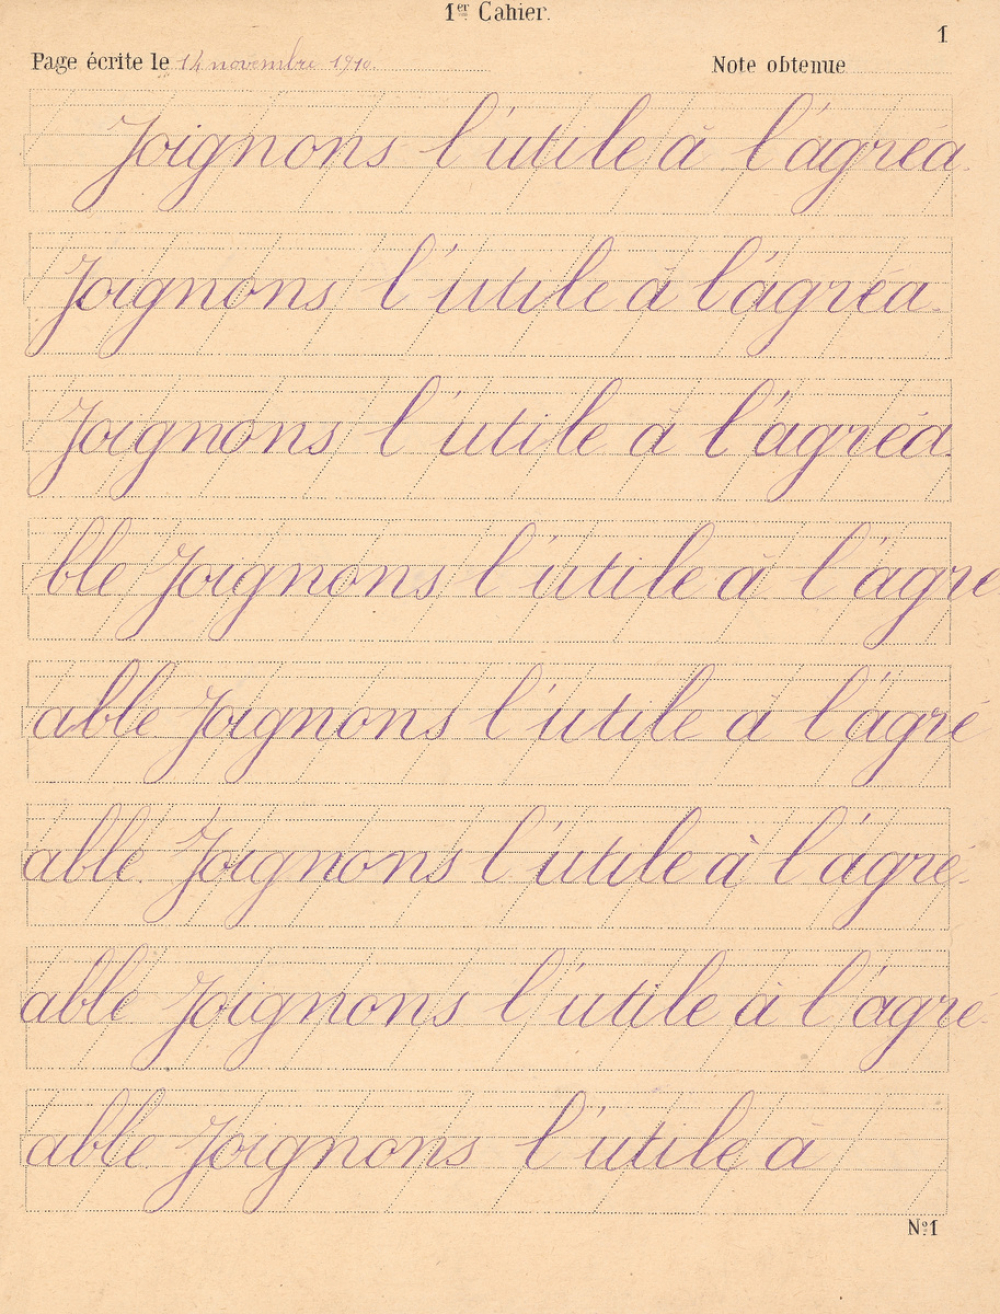 1er Cahier.
1
Page écrite le 14 novembre 1910. Note obtenue
Joignons l'utile à l'agréa
Joignons l'utile à l'agréa
Joignons l'utile à l'agréa
ble Joignons l'utile à l'agré
able Joignons l'utile à l'agré
able. Joignons l'utile à l'agré-
able Joignons l'utile à l'agré-
able Joignons l'utile à
No 1